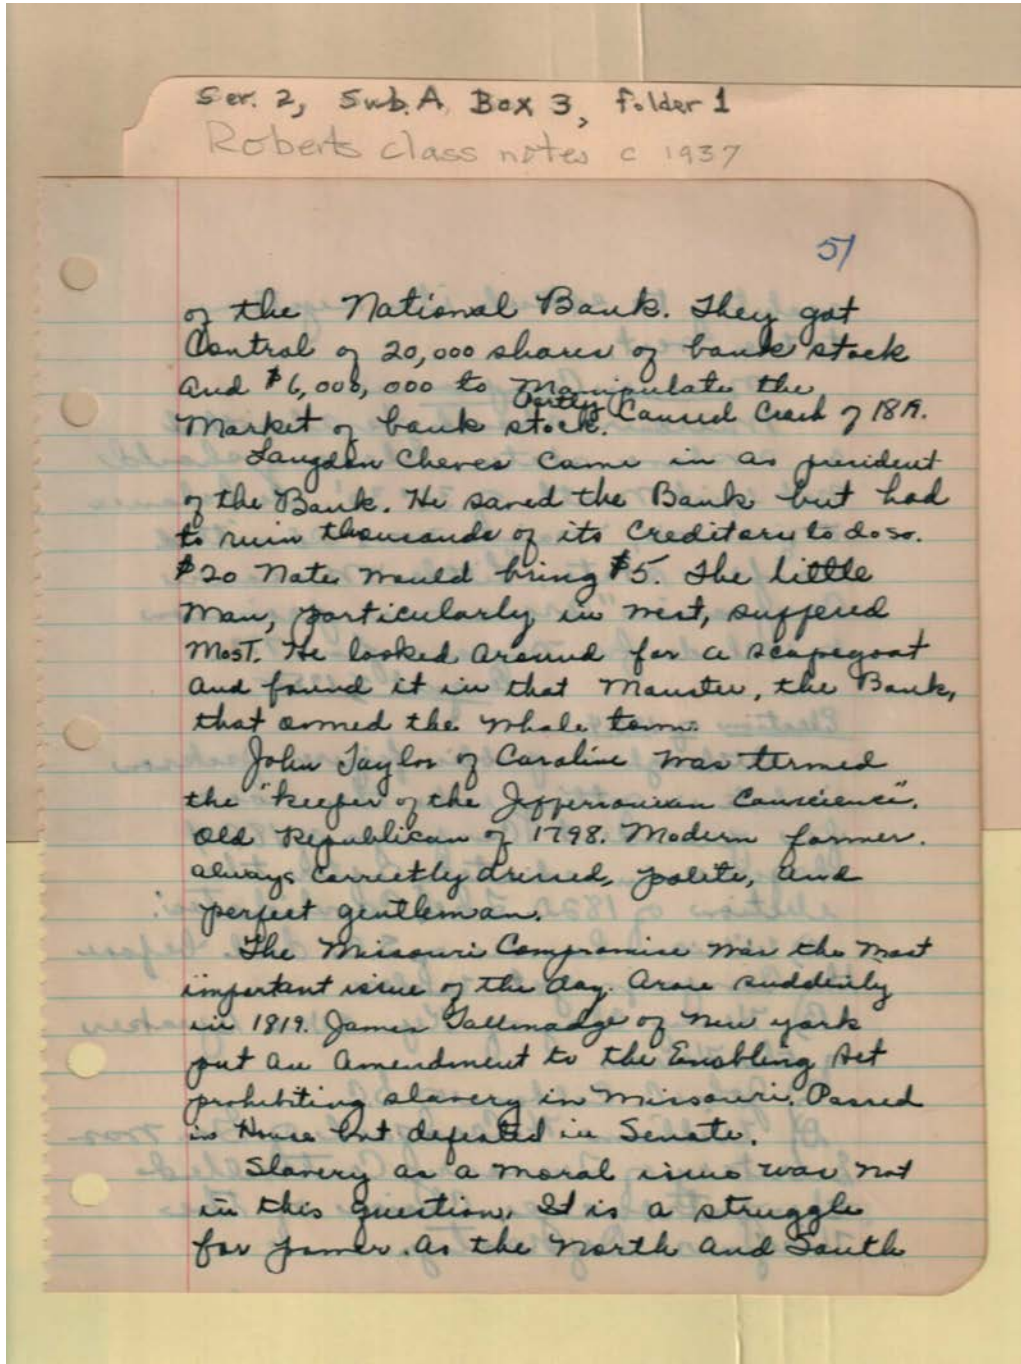 Ser. 2, Sub. A Box 3, Folder 1
Roberts class notes c 1937
51
of the National Bank. They got
Control of 20,000 shares of bank stock
and $6,000,000 to Manipulate the
Market of bank stock. Partly Caused Crash of 1819.
Langdon Cheves came in as president
of the Bank. He saved the Bank but had
to ruin thousands of its Creditors to do so.
$20 Notes would bring $5. The little
Man, particularly in west, suffered
Most. He looked around for a scapegoat
and found it in that Monster, the Bank,
that owned the whole town.
John Taylor of Caroline was termed
the "keeper of the Jeffersonian Conscience".
Old Republican of 1798. Modern farmer.
always correctly dressed, polite, and
perfect gentleman.
The Missouri Compromise was the most
important issue of the day. Arose suddenly
in 1819. James Tallmadge of New York
put an amendment to the Enabling Act
prohibiting slavery in Missouri. Passed
in House but defeated in Senate.
Slavery as a moral issue was not
in this question. It is a struggle
for power. As the North and South